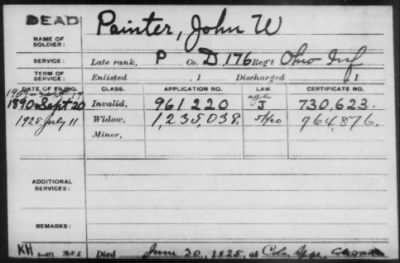 DEAD
NAME OF SOLDIER: Painter, John W
SERVICE: Late rank, P Co. D, 176 Reg't Ohio Inf
TERM OF SERVICE: Enlisted , 1 Discharged , 1
DATE OF FILING. CLASS. APPLICATION NO. LAW. CERTIFICATE NO.
1890 Sept 20 Invalid, 961220 J 730,623.
1925 July 11 Widow, 1,235,038. 964,876.
Minor,
ADDITIONAL SERVICES:
REMARKS:
KH Died June 30, 1925, at Colo. Spgs,